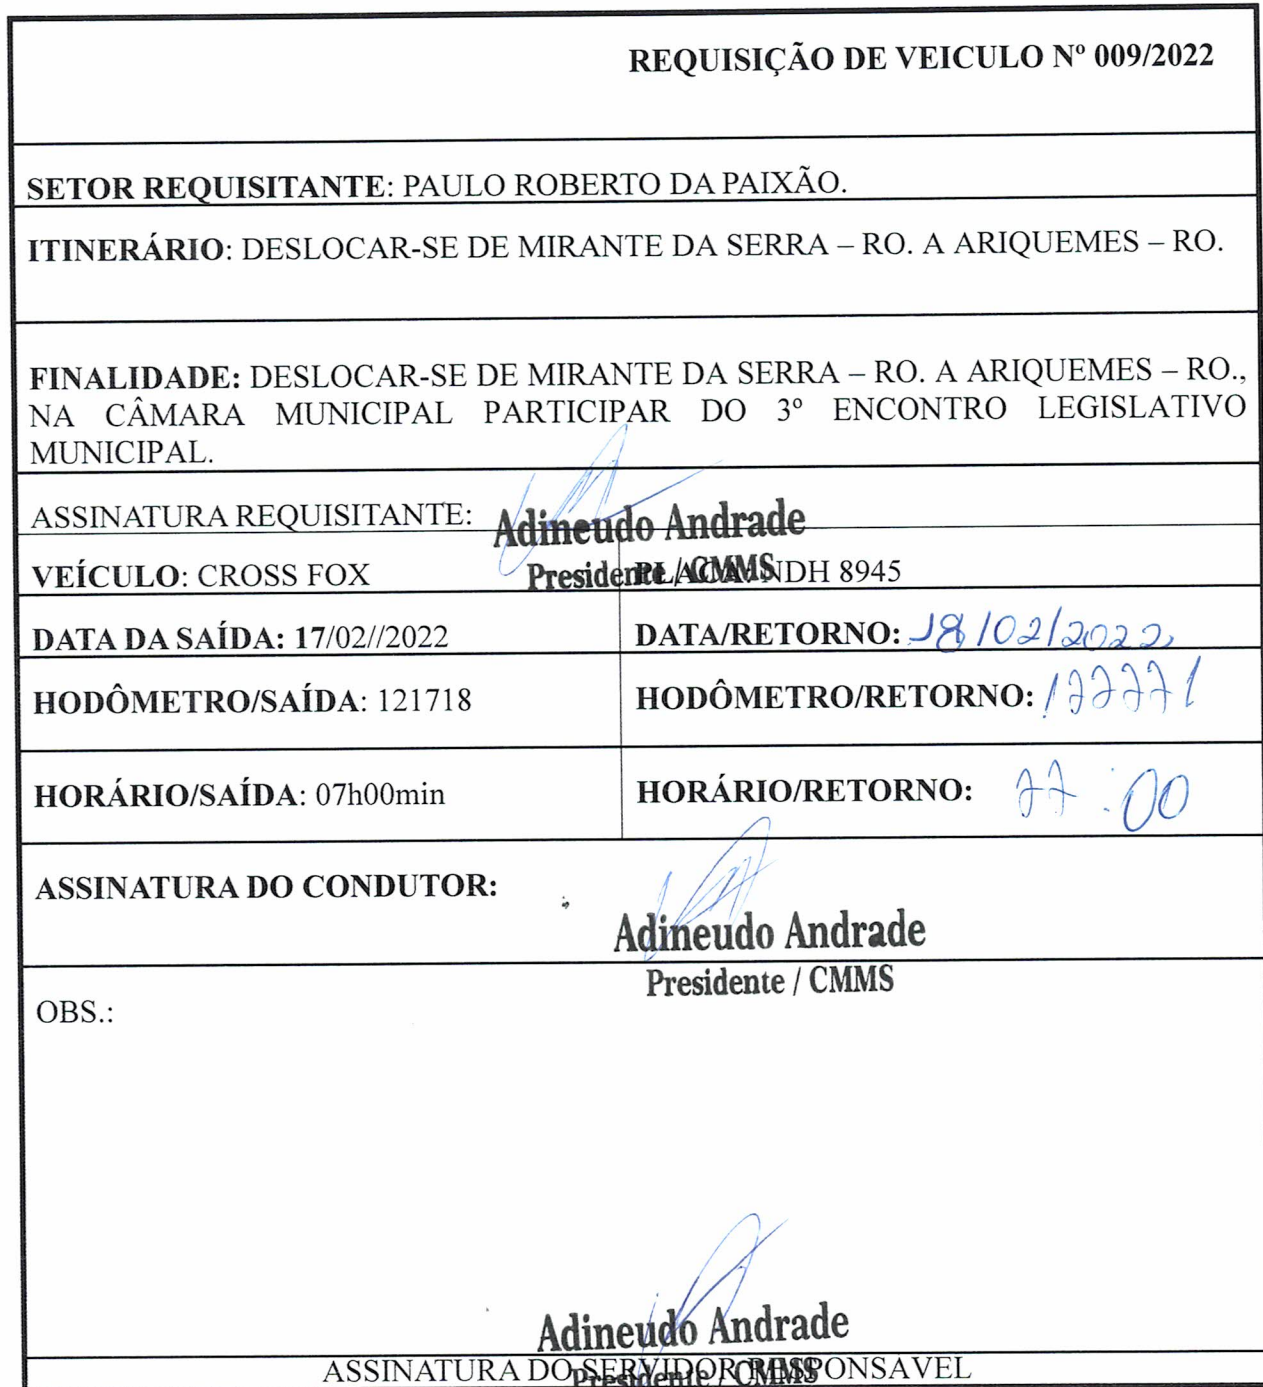 REQUISIÇÃO DE VEICULO Nº 009/2022
SETOR REQUISITANTE: PAULO ROBERTO DA PAIXÃO.
ITINERÁRIO: DESLOCAR-SE DE MIRANTE DA SERRA – RO. A ARIQUEMES – RO.
FINALIDADE: DESLOCAR-SE DE MIRANTE DA SERRA – RO. A ARIQUEMES – RO.,
NA CÂMARA MUNICIPAL PARTICIPAR DO 3º ENCONTRO LEGISLATIVO
MUNICIPAL.
ASSINATURA REQUISITANTE: Adineudo Andrade
Presidente / CMMS
VEÍCULO: CROSS FOX PLACA: NDH 8945
DATA DA SAÍDA: 17/02//2022 DATA/RETORNO: 18/02/2022
HODÔMETRO/SAÍDA: 121718 HODÔMETRO/RETORNO:
HORÁRIO/SAÍDA: 07h00min HORÁRIO/RETORNO:
ASSINATURA DO CONDUTOR:
Adineudo Andrade
Presidente / CMMS
OBS.:
Adineudo Andrade
Presidente / CMMS
ASSINATURA DO SERVIDOR RESPONSAVEL